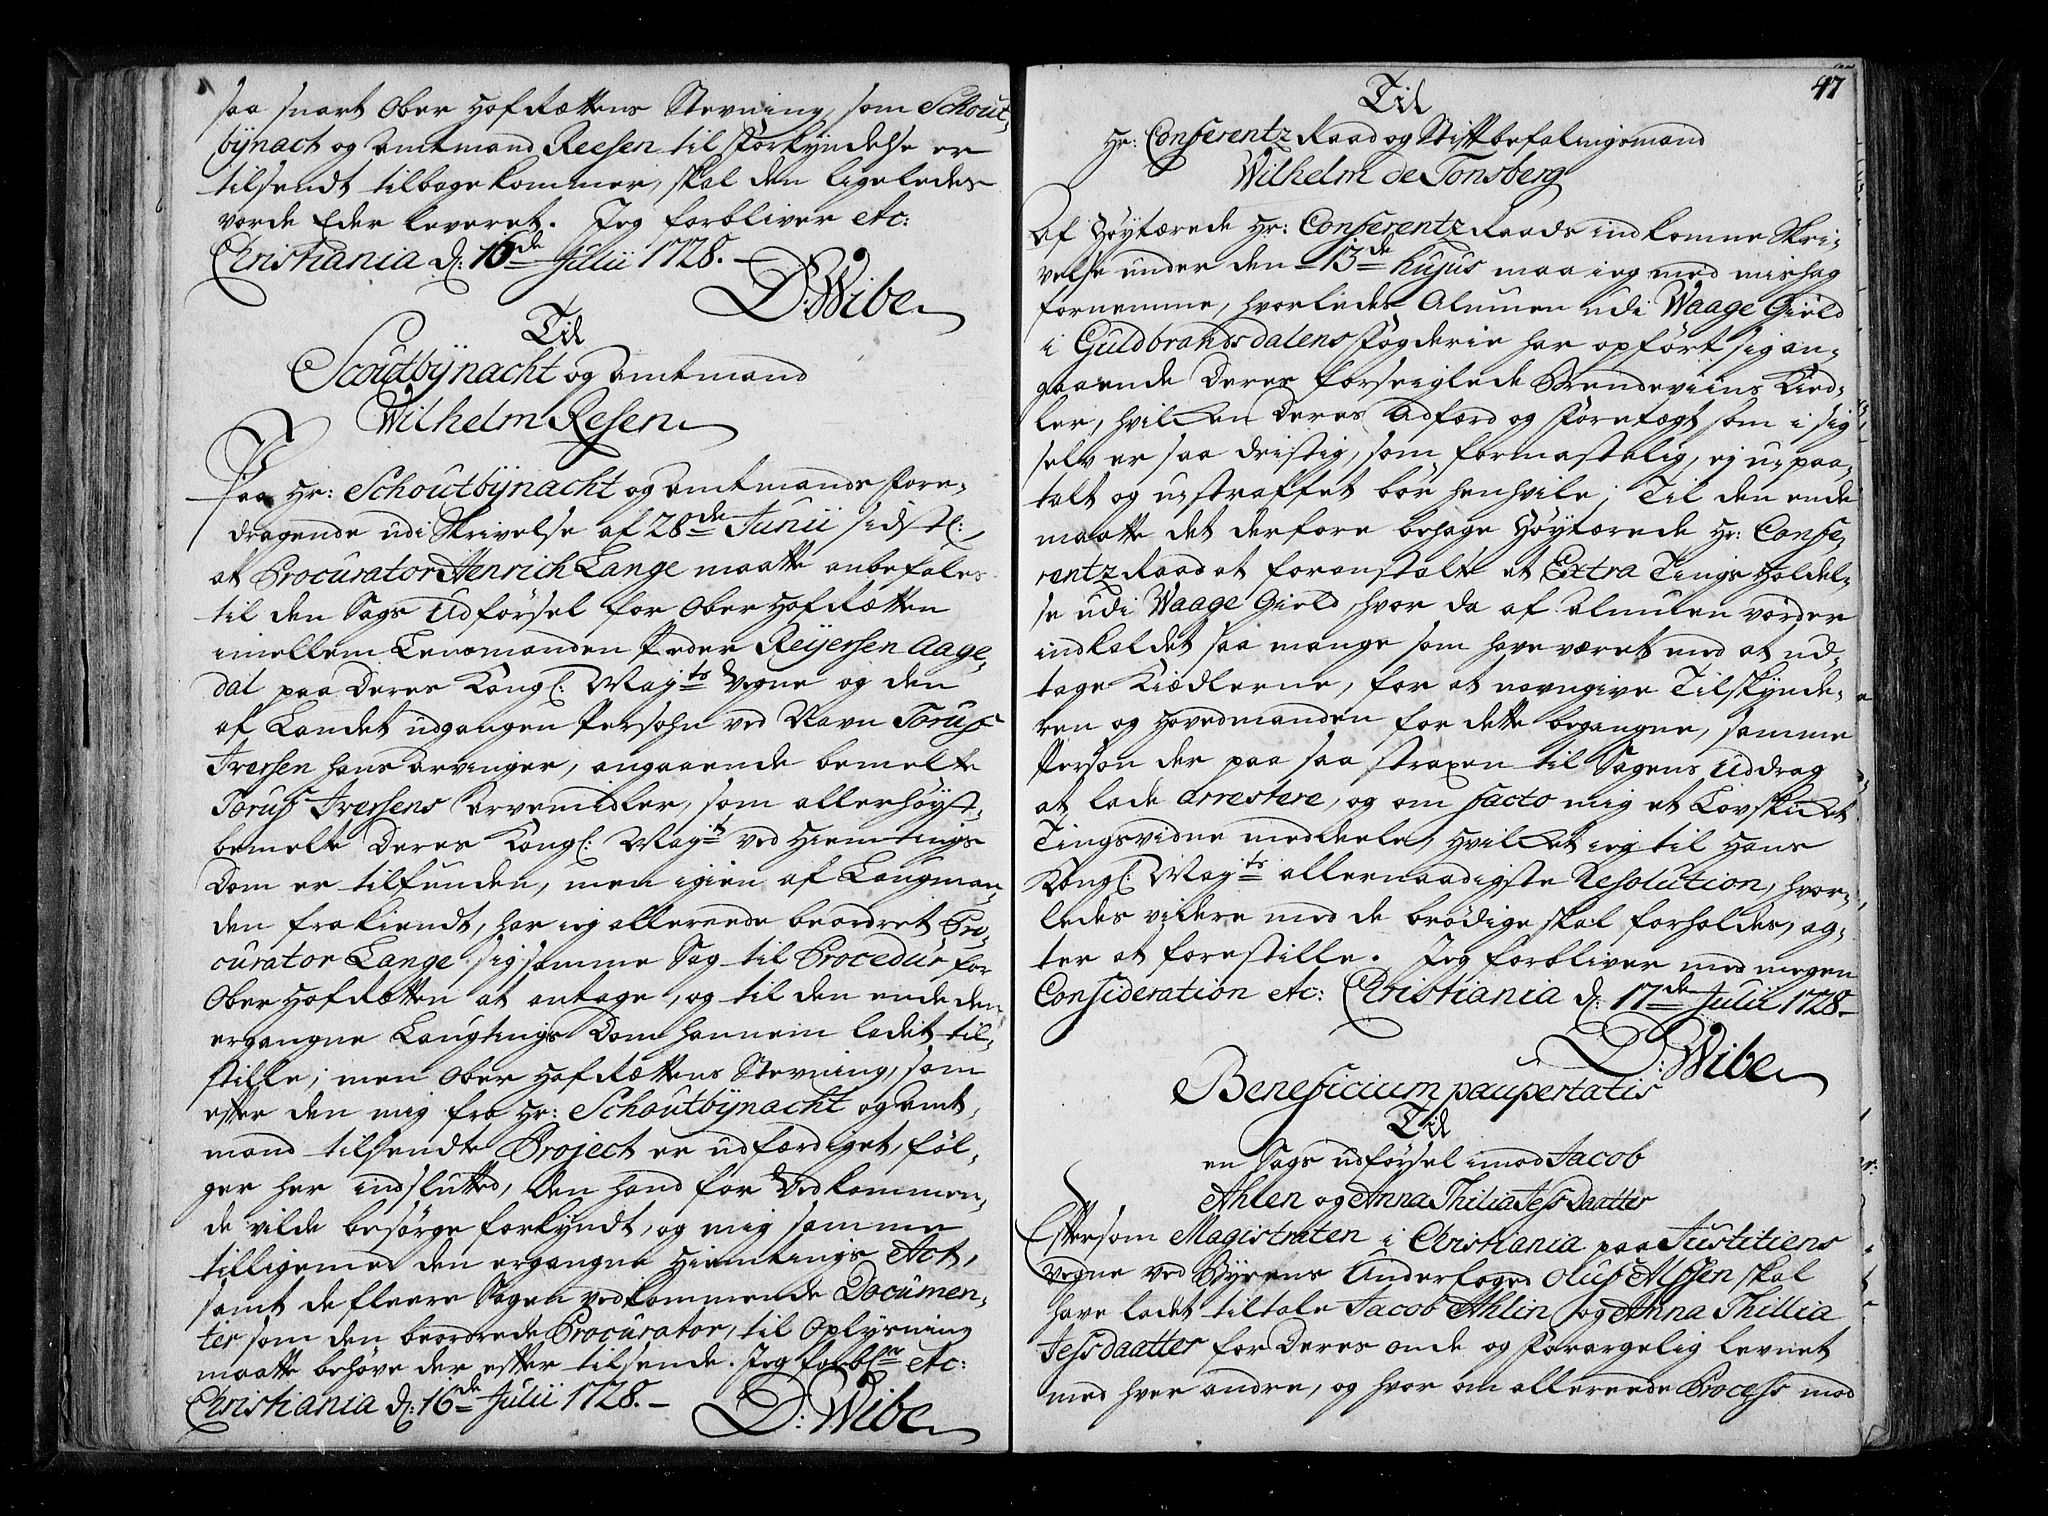 saa snart Ober Hof Rættens Stevning, som Schout-
bÿnact og Amtmand Reesen til Forkyndelse er
tilsendt tilbagekommer, skal den ligeledes
vorde Eder leveret. Jeg forbliver etc:
Christiania d: 16de Julii 1728.
D: Wibe
Til
Scoutbÿnacht og Amtmand
Wilhelm Resen
Paa Hr: Schoutbÿnacht og Amtmands Fore-
dragende udi Skrivelse af 28de Junii sidstl:
at Procurator Henrich Lange maatte anbefales
til den Sags Udførsel for Ober Hof Rætten
imellem Lensmanden Peder Reÿersen Aage-
dal paa Deres Kongl: Mayts Vegne og den
af Landet udgangen Persohn ved Navn Toruf
Iversen hans Arvinger, angaaende bemelte
Toruf Iversens Arvemidler, som allerhøyst-
bemelte Deres Kongl: Mayt ved Hiemtings
Dom er tilfunden, men igien af Laugman-
den frakiendt, har ieg allerede beordret Pro-
curator Lange sig samme Sag til Procedur for
Ober Hof Rætten at antage, og til den ende den
ergangne Laugtings Dom hannem ladet til-
stille; men Ober Hof Rættens Stevning, som
efter den mig fra Hr: Schoutbÿnacht og Amt-
mand tilsendte Project er udfærdiget, føl-
ger her indsluttet, den hand for Vedkommen-
de vilde besørge forkyndt, og mig samme
tilligemed den ergangne Hiemtings Act,
samt de fleere Sagen vedkommende Documen-
ter som den beordrede Procurator, til Oplysning
maatte behøve der efter tilsende. Jeg forblr etc:
Christiania d: 16de Julii 1728.
D: Wibe
47
Til
Hr: Conferentz Raad og Stiftbefalingsmand
Wilhelm de Tonsberg
Af Høytærede Hr: Conferentz Raads indkomne Skri-
velse under den 13de hujus maa ieg med mishag
fornemme, hvorledes Almuen udi Waage Gield
i Guldbrandsdalens Fogderie har opført sig an-
gaaende Deres forseiglede Brendeviins Kied-
ler, hvilken Deres Adfærd og Foretægt som i sig
selv er saa dristig, som formastelig, ej u-paa-
talt og u-straffet bør henhvile; Til den ende
maatte det derfore behage Høytærede Hr: Confe-
rentz Raad at foranstalte et Extra Tings Holdel-
se udi Waage Gield, hvor da af Almuen vorder
indkaldet saa mange som have været med at ud-
tage Kiedlerne, for at navngive Tilskynde-
ren og Hovedmanden for dette begangne, samme
Person der paa saa straxen til Sagens Uddrag
at lade arrestere, og om facto mig et Lovskikket
Tingsvidne meddeele, hvilket ieg til Hans
Kongl: Mayts allernaadigste Resolution, hvor-
ledes videre med de brødige skal forholdes, ag-
ter at forestille. Jeg forbliver med megen
Consideration etc: Christiania d: 17de Julii 1728.
D: Wibe
Beneficium paupertatis
Til
en Sags udførsel imod Jacob
Ahlen og Anna Thilia Jess Daatter
Eftersom Magistraten i Christiania paa Justitiens
Vegne ved Byens Underfoged Oluf Alssen skal
have ladet tiltale Jacob Ahlin og Anna Thillia
Jessdaatter for Deres onde og forargelig levnet
med hver andre, og hvor om allerede Process med